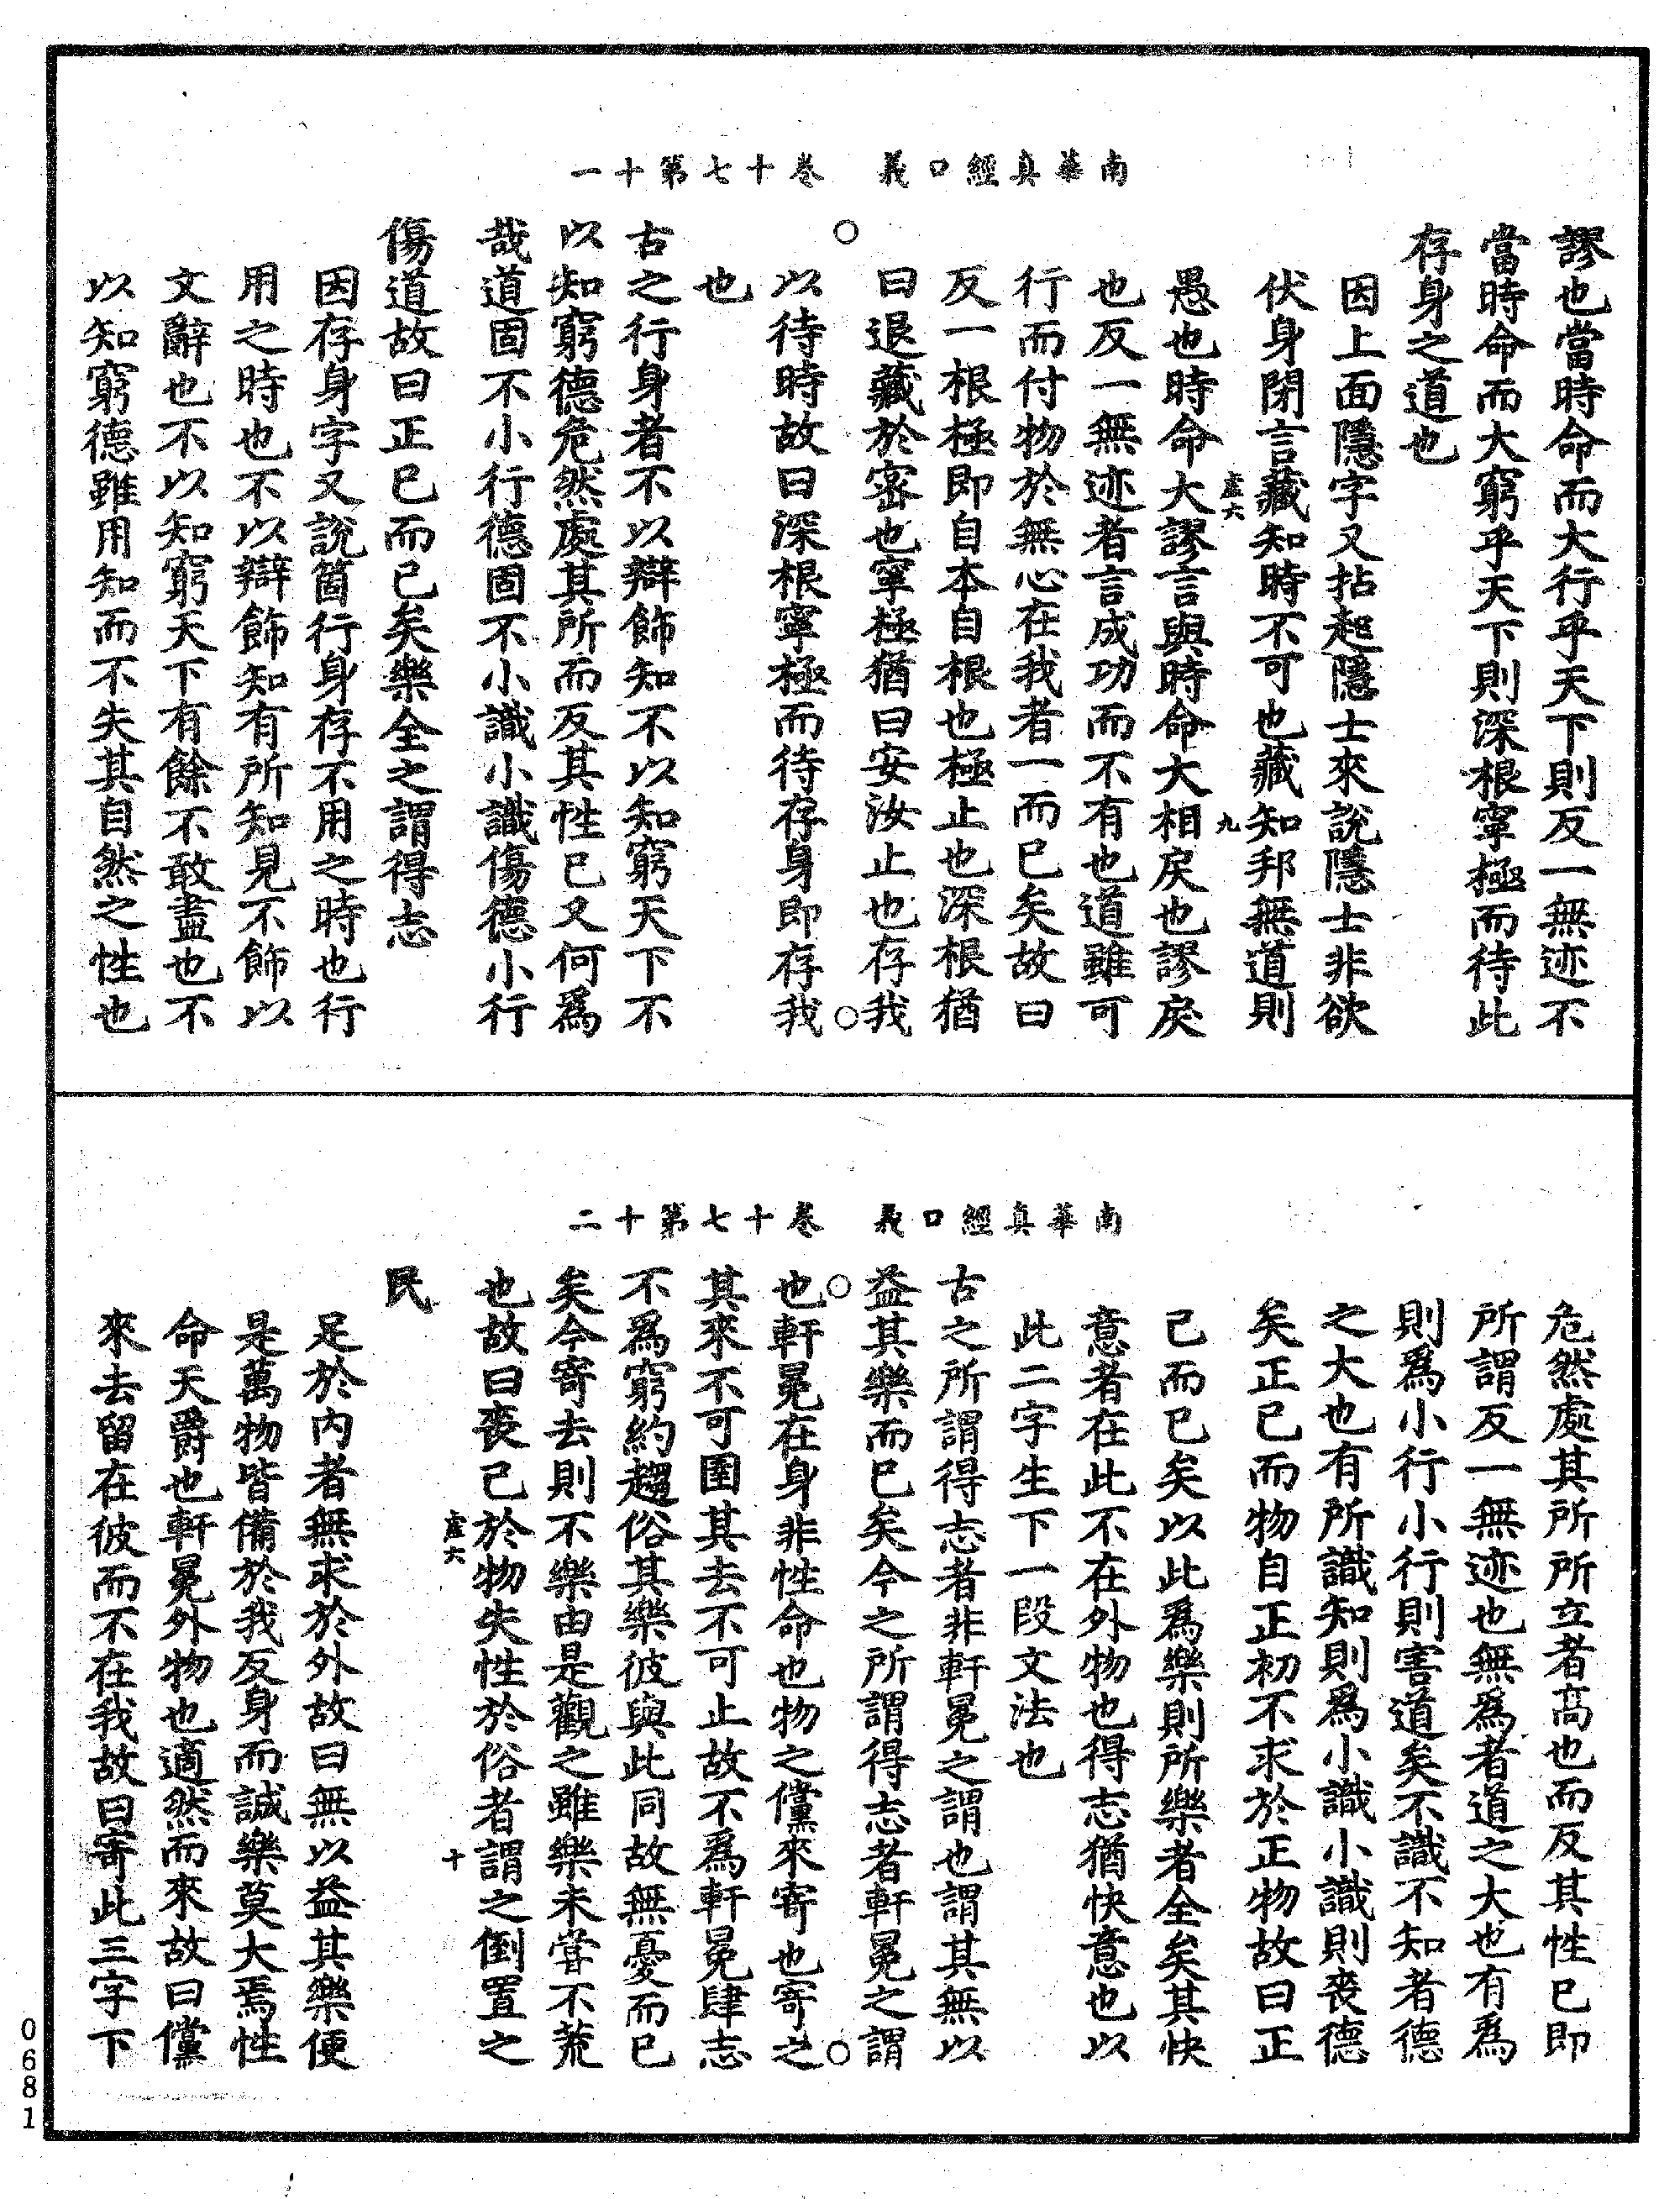 南華真經口義　卷十七第十一
謬也當時命而大行乎天下則反一無迹不
當時命而大窮乎天下則深根寧極而待此
存身之道也
因上面隱字又拈起隱士來說隱士非欲
伏身閉言藏知時不可也藏知邦無道則
虛六　九
愚也時命大謬言與時命大相戾也謬戾
也反一無迹者言成功而不有也道雖可
行而付物於無心在我者一而已矣故曰
反一根極即自本自根也極止也深根猶
曰退藏於密也寧極猶曰安汝止也存我
○　○
以待時故曰深根寧極而待存身即存我
也
古之行身者不以辯飾知不以知窮天下不
以知窮德危然處其所而反其性已又何爲
哉道固不小行德固不小識小識傷德小行
傷道故曰正已而已矣樂全之謂得志
因存身字又說箇行身存不用之時也行
用之時也不以辯飾知有所知見不飾以
文辭也不以知窮天下有餘不敢盡也不
以知窮德雖用知而不失其自然之性也
南華真經口義　卷十七第十二
危然處其所所立者高也而反其性已即
所謂反一無迹也無爲者道之大也有爲
則爲小行小行則害道矣不識不知者德
之大也有所識知則爲小識小識則喪德
矣正已而物自正初不求於正物故曰正
已而已矣以此爲樂則所樂者全矣其快
意者在此不在外物也得志猶快意也以
此二字生下一段文法也
古之所謂得志者非軒冕之謂也謂其無以
益其樂而已矣今之所謂得志者軒冕之謂
○　○
也軒冕在身非性命也物之儻來寄也寄之
其來不可圉其去不可止故不爲軒冕肆志
不爲窮約趨俗其樂彼與此同故無憂而已
矣今寄去則不樂由是觀之雖樂未嘗不荒
也故曰喪己於物失性於俗者謂之倒置之
虛六　十
民
足於內者無求於外故曰無以益其樂便
是萬物皆備於我反身而誠樂莫大焉性
命天爵也軒冕外物也適然而來故曰儻
來去留在彼而不在我故曰寄此三字下
0681